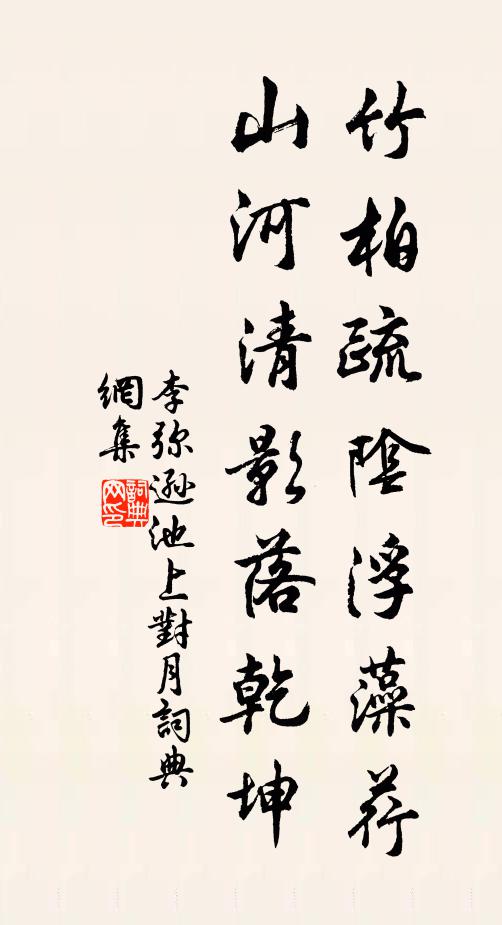 竹柏疏陰浮藻荇
山河清影落乾坤
李弥遜池上對月詞典
網集
詞典
网印